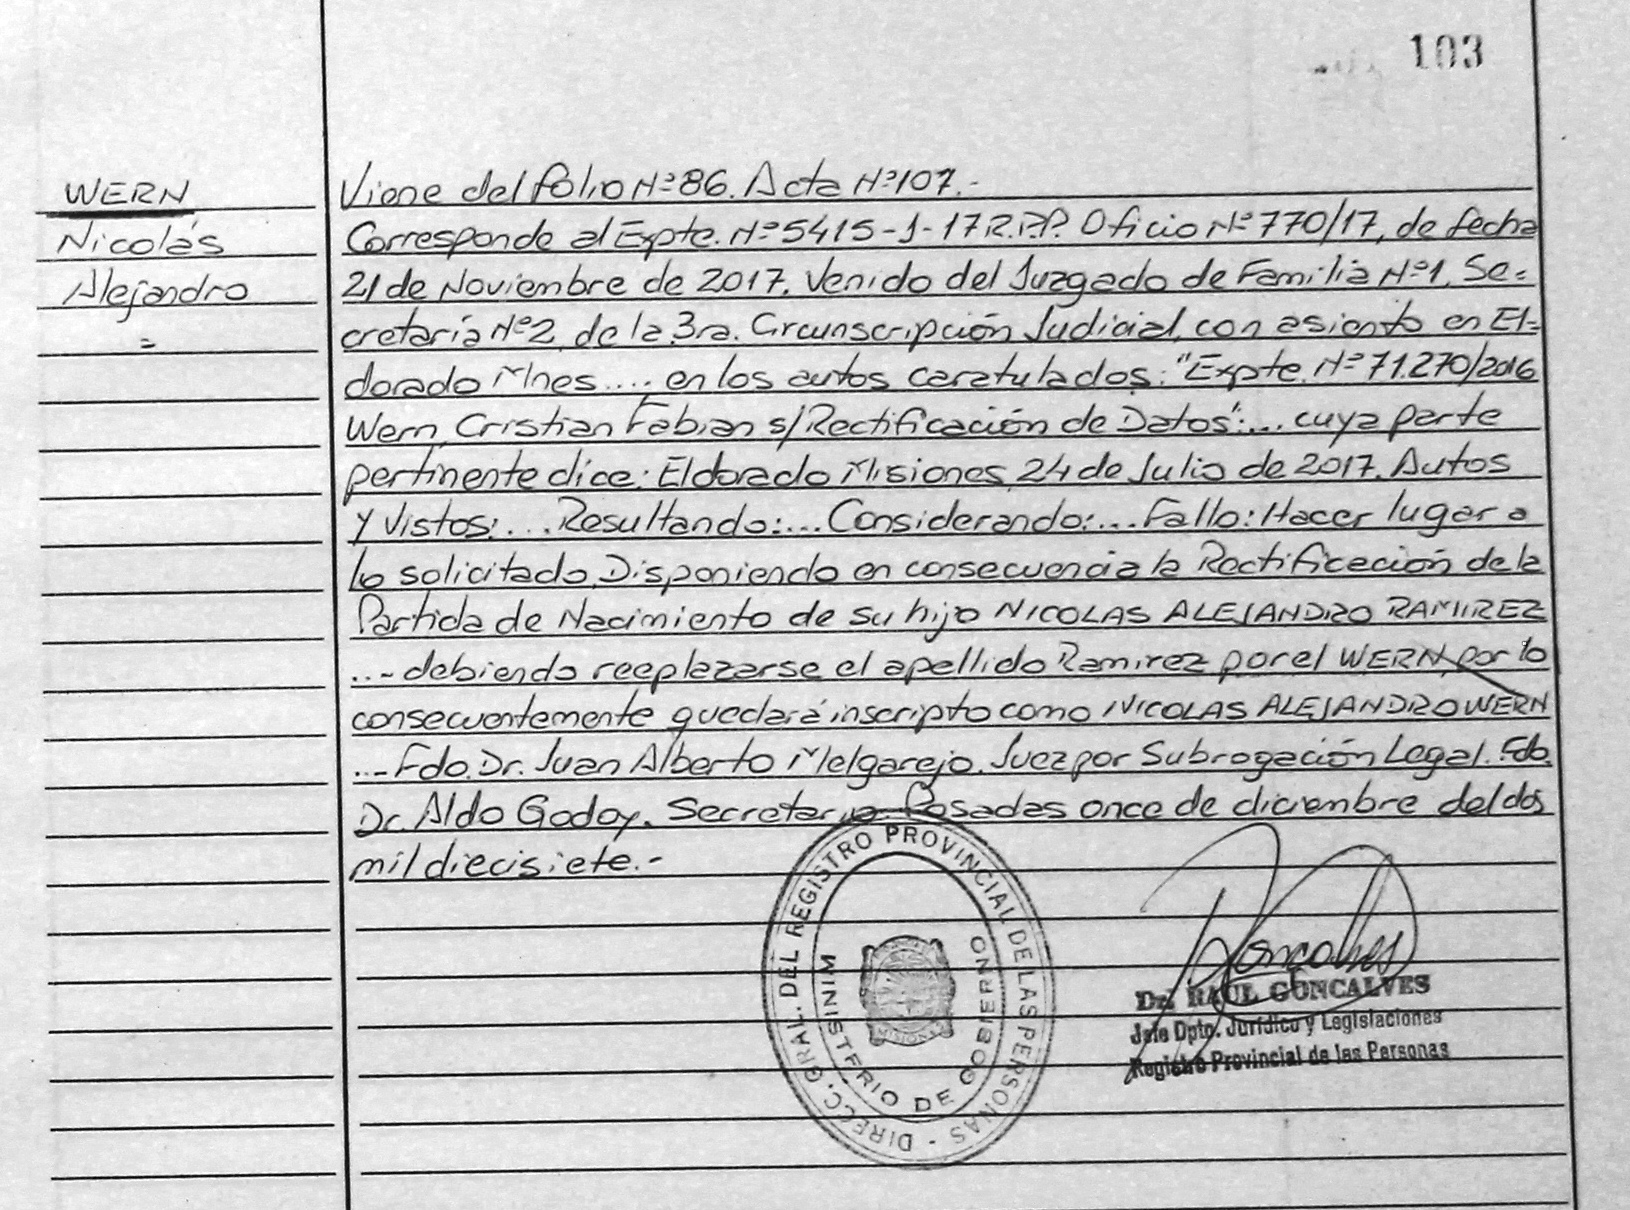 103
WERN
Nicolás
Alejandro
=
Viene del folio Nº 86. Acta Nº 107.-
Corresponde al Expte. Nº 5415-J-17 R.P.P. Oficio Nº 770/17, de fecha
21 de Noviembre de 2017. Venido del Juzgado de Familia Nº 1, Se=
cretaría Nº 2, de la 3ra. Circunscripción Judicial, con asiento en El=
dorado Mnes.... en los autos caratulados: "Expte. Nº 71.270/2016
Wern, Cristian Fabian s/Rectificación de Datos":... cuya parte
pertinente dice: Eldorado Misiones, 24 de Julio de 2017. Autos
y Vistos:... Resultando:... Considerando:... Fallo: Hacer lugar a
lo solicitado, Disponiendo en consecuencia la Rectificación de la
Partida de Nacimiento de su hijo NICOLAS ALEJANDRO RAMIREZ
...- debiendo reeplazarse el apellido Ramirez por el WERN, por lo
consecuentemente quedará inscripto como NICOLAS ALEJANDRO WERN
...- Fdo. Dr. Juan Alberto Melgarejo. Juez por Subrogación Legal. Fdo.
Dr. Aldo Godoy. Secretario. Posadas once de diciembre del dos
mil diecisiete.-
DIRECC. GRAL. DEL REGISTRO PROVINCIAL DE LAS PERSONAS -
MINISTERIO DE GOBIERNO
MISIONES
Goncalves
Dr. RAUL GONCALVES
Jefe Dpto. Jurídico y Legislaciones
Registro Provincial de las Personas